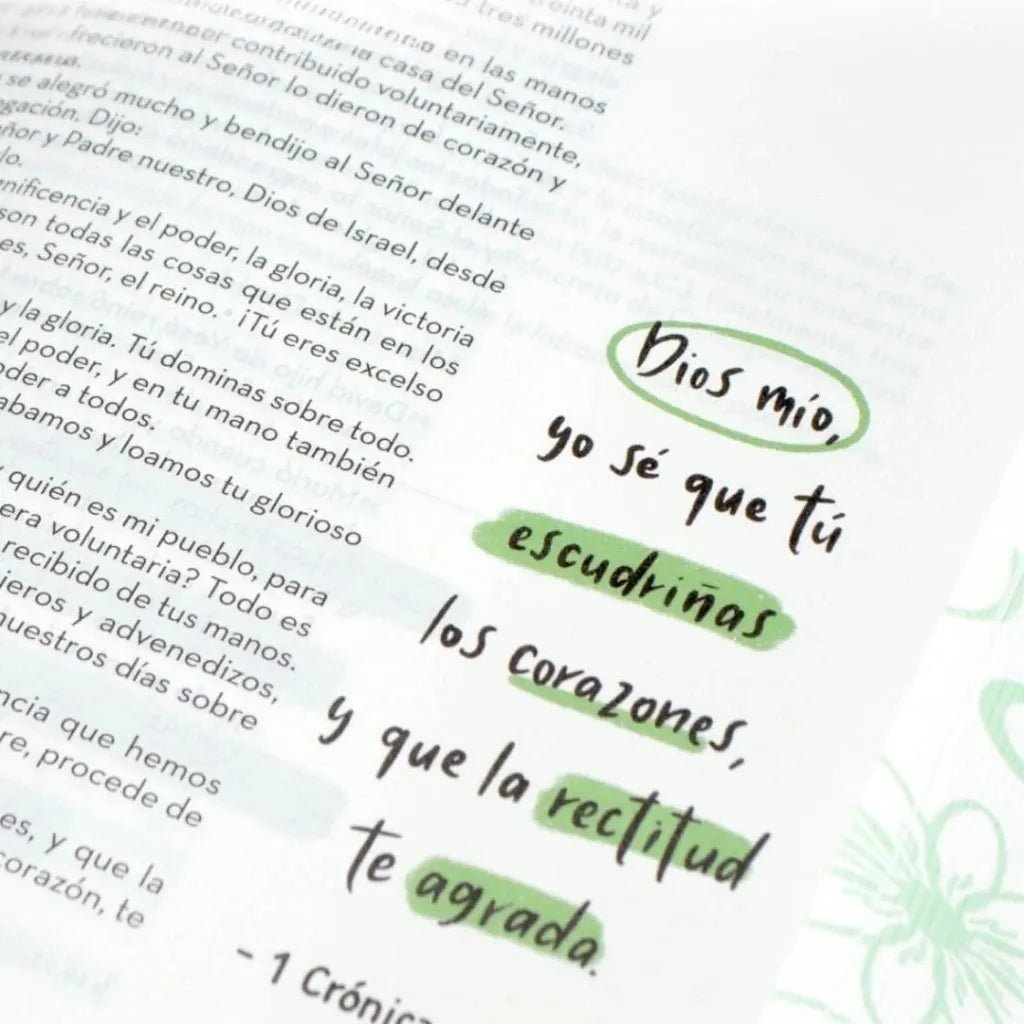 y
treinta mil
tres millones
en las manos
casa del Señor.
contribuido voluntariamente,
frecieron al Señor lo dieron de corazón y
se alegró mucho y bendijo al Señor delante
gación. Dijo:
ñor y Padre nuestro, Dios de Israel, desde
lo.
nificencia y el poder, la gloria, la victoria
son todas las cosas que están en los
es, Señor, el reino. ¡Tú eres excelso
y la gloria. Tú dominas sobre todo.
el poder, y en tu mano también
oder a todos.
abamos y loamos tu glorioso
quién es mi pueblo, para
era voluntaria? Todo es
recibido de tus manos.
jeros y advenedizos,
nuestros días sobre
ncia que hemos
re, procede de
es, y que la
corazón, te
Dios mío,
yo sé que tú
escudriñas
los corazones,
y que la rectitud
te agrada.
- 1 Crónic